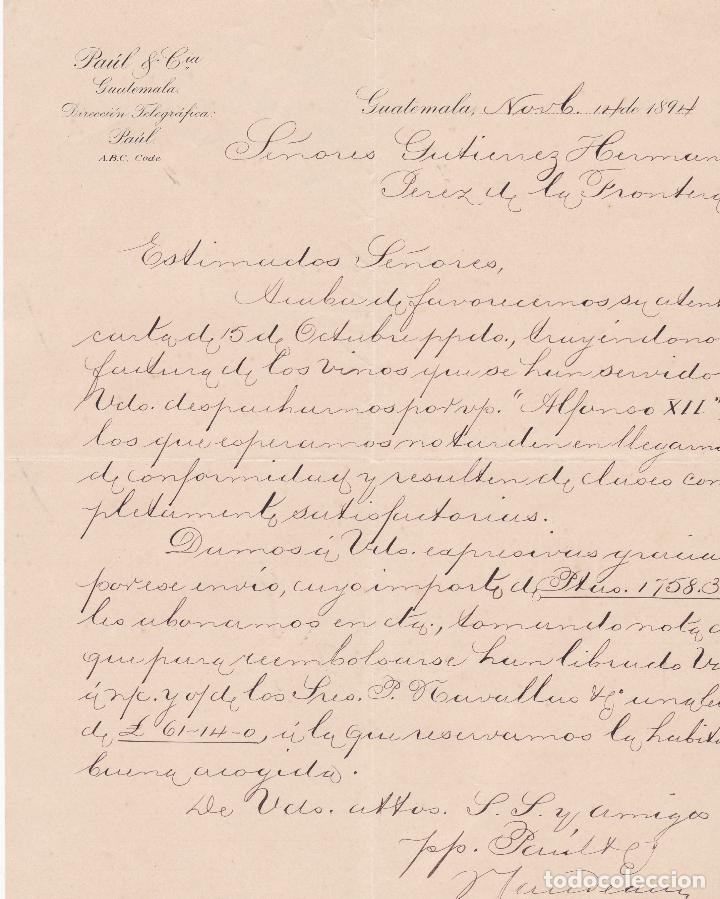 Paúl & Cía
Guatemala.
Dirección Telegráfica:
Paúl.
A.B.C. Code
Guatemala, Novb. 14 de 1894
Señores Gutierrez Herman
Jerez de la Frontera
Estimados Señores,
Acaba de favorecernos su atent
carta de 15 de Octubre ppdo., trayéndono
factura de los vinos que se han servido
Vds. despacharnos por vp. "Alfonso XII".
los que esperamos no tarden en llegarno
de conformidad y resulten de clases com
pletamente satisfactorias.
Damos á Vds. expresivas gracia
por ese envío, cuyo importe de Ptas. 1758.3
les abonamos en cta., tomando nota d
que para reembolsarse han librado Vd
á n/c. y o/ de los Sres. P. Navallas & Cº una le
de £ 61-14-0, á la que reservamos la habitu
buena acogida.
De Vds. attos. S. S. y amigos
pp. Paúl & C
todocoleccion